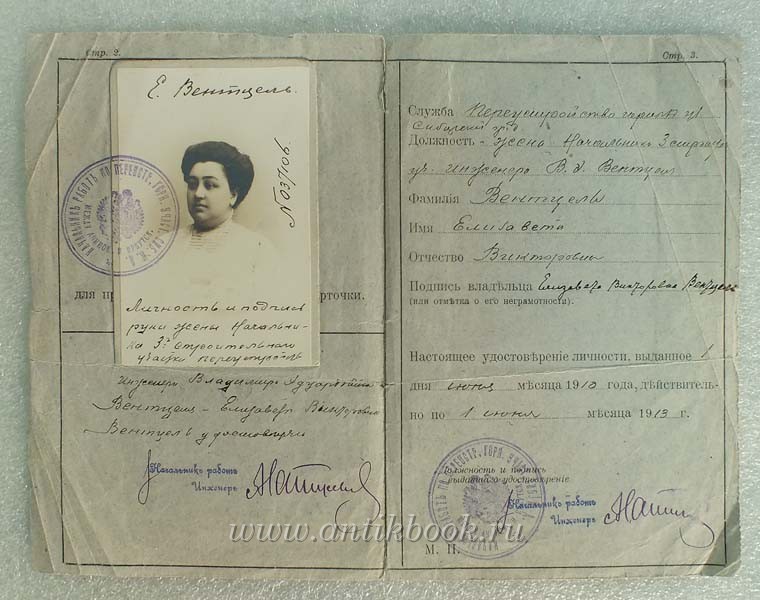 Стр. 2.
Е. Вентцель.
№ 037106
для пр
рточки.
Личность и подпись
руки жены Начальни-
ка 3го строительного
участка переустройств
инженера Владимира Эдуардовича
Вентцель - Елизаветы Викторовны
Вентцель удостоверяю
Начальникъ работъ
Инженеръ
Стр. 3.
Служба Переустройства горныхъ уч
Сибирской ж д
Должность жена Начальника 3 строит
уч. инженера В. Э. Вентцель
Фамилія Вентцель
Имя Елизавета
Отчество Викторовна
Подпись владѣльца Елизавета Викторовна Вентцель
(или отмѣтка о его неграмотности).
Настоящее удостовѣреніе личности, выданное 1
дня июня мѣсяца 1910 года, дѣйствитель-
но по 1 июня мѣсяца 1913 г.
Должность и подпись
выдавшаго удостовѣреніе
Начальникъ работъ
Инженеръ
М. П.
www.antikbook.ru